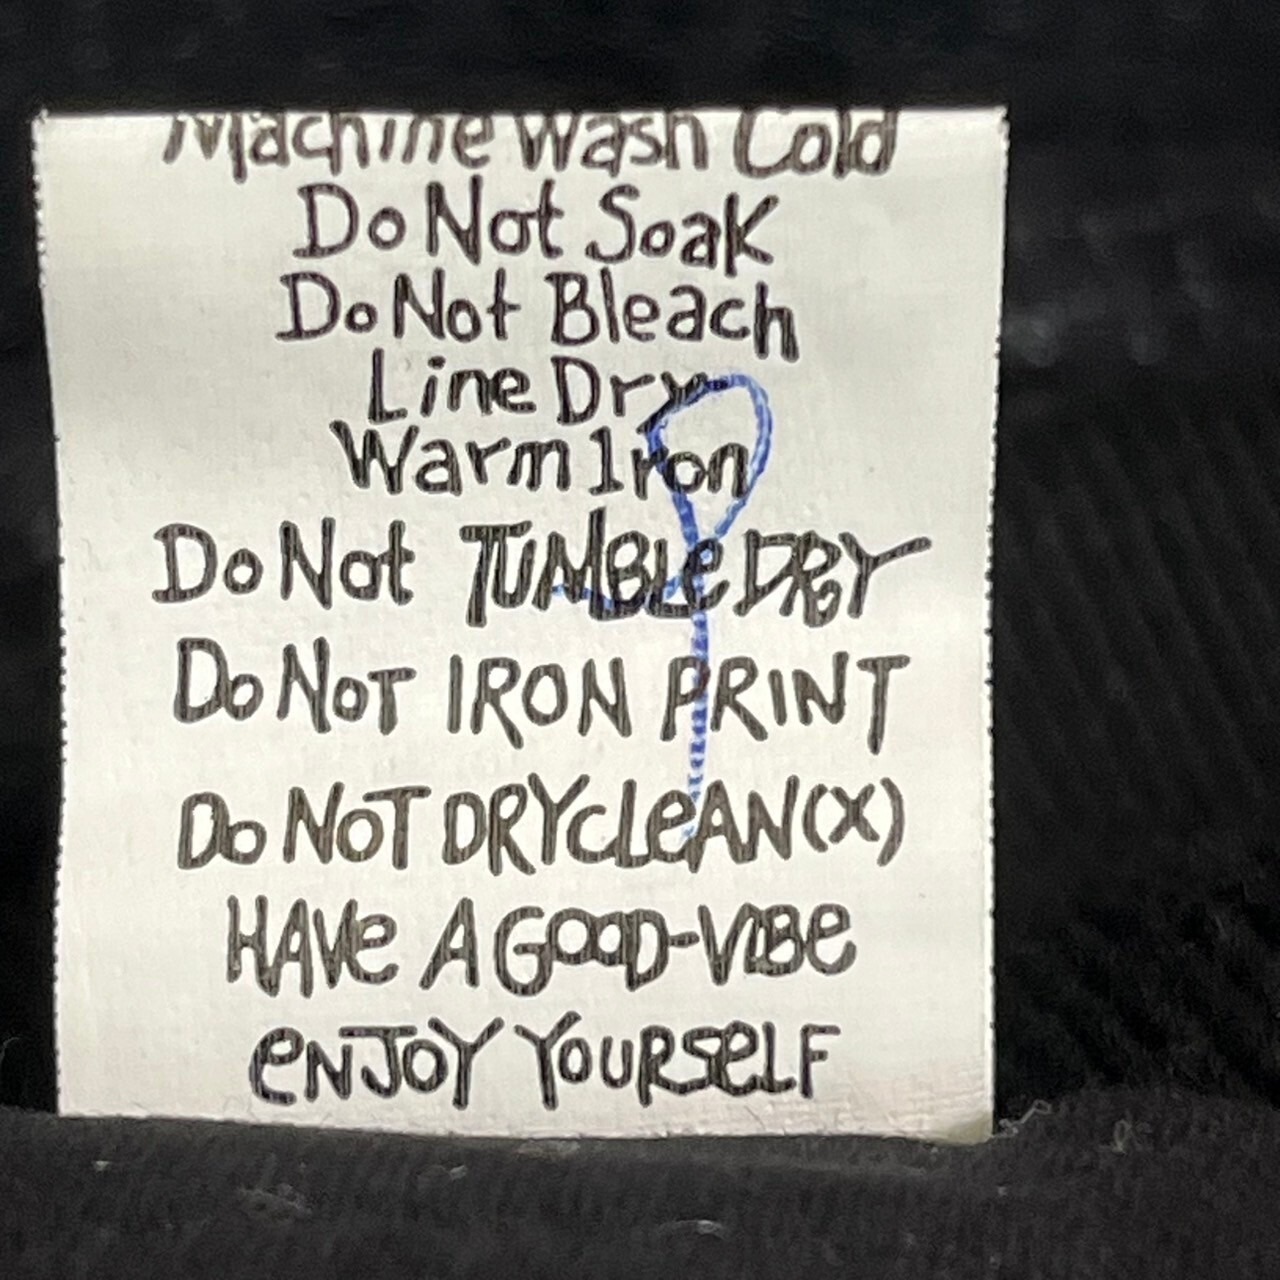 Machine Wash Cold
Do Not Soak
Do Not Bleach
Line Dry
Warm Iron
Do Not TUMBLe DRY
Do NoT IRON PRINT
Do NoT DRYcleAN(X)
HAVe A GOOD-VIBe
eNJOY YOURSeLF